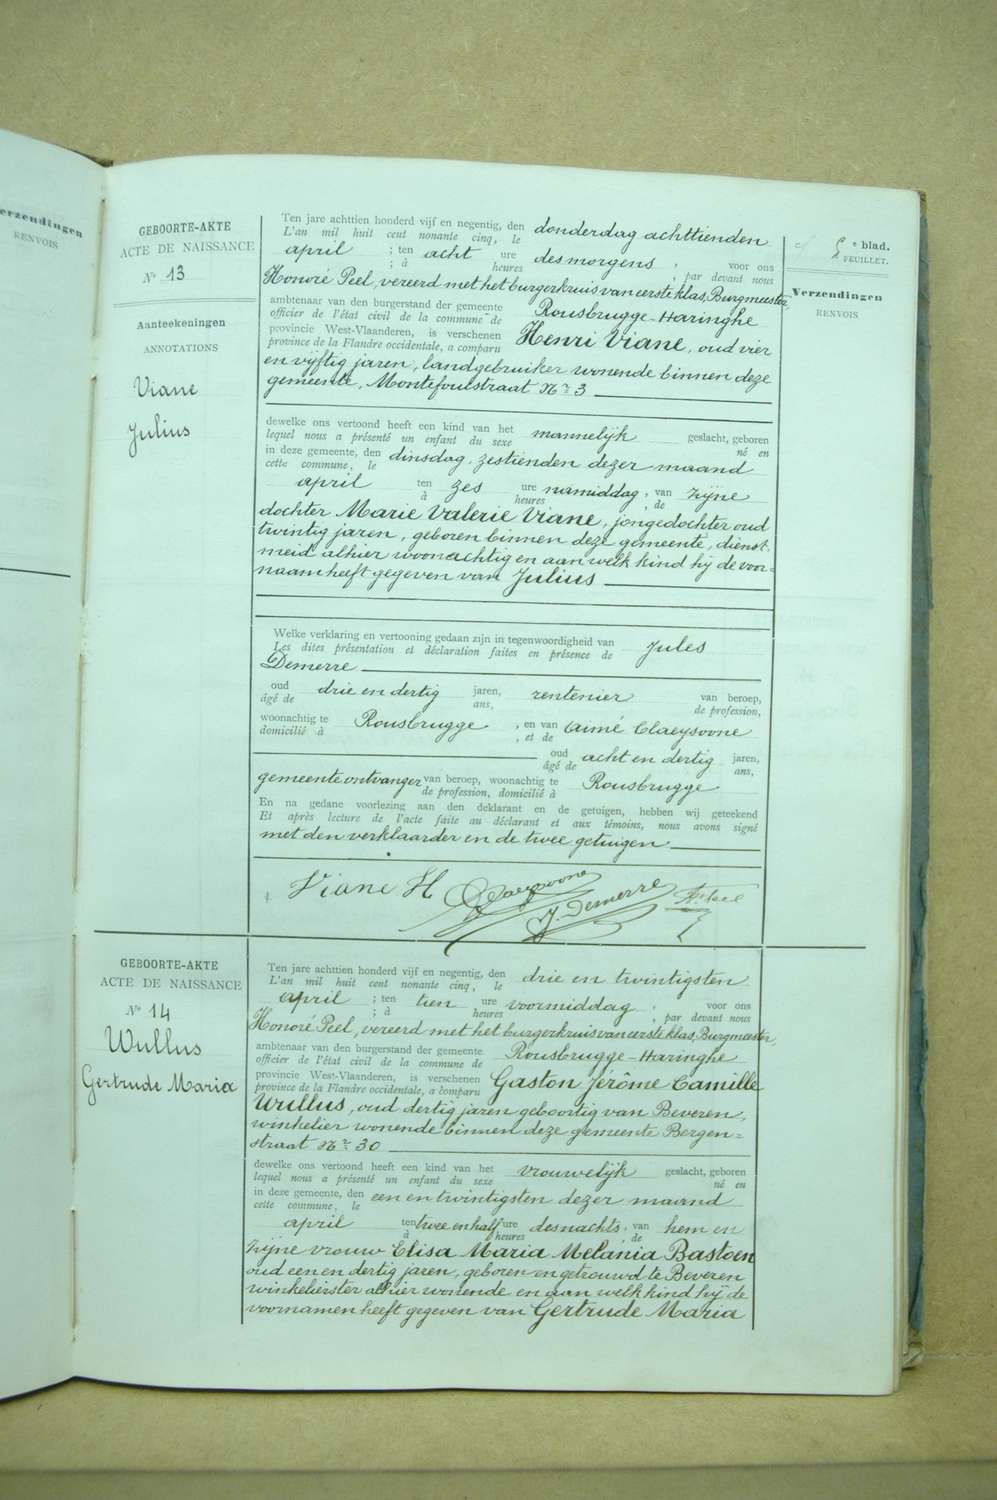 erzendingen
RENVOIS
GEBOORTE-AKTE
ACTE DE NAISSANCE
No 13
Aanteekeningen
ANNOTATIONS
Viane
Julius
Ten jare achttien honderd vijf en negentig, den
L'an mil huit cent nonante cinq, le
donderdag achttienden
april ; ten acht ure des morgens , voor ons
; à heures , par devant nous
Honoré Peel, vereerd met het burgerkruis van eerste klas, Burgmeester,
ambtenaar van den burgerstand der gemeente
officier de l'état civil de la commune de
Rousbrugge-Haringhe
provincie West-Vlaanderen, is verschenen
province de la Flandre occidentale, a comparu
Henri Viane, oud vier
en vijftig jaren, landgebruiker wonende binnen deze
gemeente, Montefoulstraat Nr 3
dewelke ons vertoond heeft een kind van het mannelijk geslacht, geboren
lequel nous a présenté un enfant du sexe né en
in deze gemeente, den dinsdag, zestienden dezer maand
cette commune, le
april ten zes ure namiddag, van zijne
à heures , de
dochter Marie Valerie Viane, jongedochter oud
twintig jaren, geboren binnen deze gemeente, dienst-
meid alhier woonachtig en aan welk kind hij de voor-
naam heeft gegeven van Julius
Welke verklaring en vertooning gedaan zijn in tegenwoordigheid van Jules
Les dites présentation et déclaration faites en présence de
Demerre
oud drie en dertig jaren, rentenier van beroep,
âgé de ans, de profession,
woonachtig te Rousbrugge , en van Aimé Claeysoone
domicilié à , et de
oud acht en dertig jaren,
âgé de ans,
gemeenteontvanger van beroep, woonachtig te Rousbrugge
de profession, domicilié à
En na gedane voorlezing aan den deklarant en de getuigen, hebben wij geteekend
Et après lecture de l'acte faite au déclarant et aux témoins, nous avons signé
met den verklaarder en de twee getuigen
Viane H Claeysoone J. Demerre
blad.
FEUILLET.
Verzendingen
RENVOIS
GEBOORTE-AKTE
ACTE DE NAISSANCE
No 14
Wullus
Gertrude Maria
Ten jare achttien honderd vijf en negentig, den drie en twintigsten
L'an mil huit cent nonante cinq, le
april ; ten tien ure voormiddag , voor ons
; à heures , par devant nous
Honoré Peel, vereerd met het burgerkruis van eerste klas, Burgmeester,
ambtenaar van den burgerstand der gemeente Rousbrugge-Haringhe
officier de l'état civil de la commune de
provincie West-Vlaanderen, is verschenen
province de la Flandre occidentale, a comparu
Gaston Jérôme Camille
Wullus, oud dertig jaren geboortig van Beveren,
winkelier wonende binnen deze gemeente Bergen=
straat Nr 30
dewelke ons vertoond heeft een kind van het vrouwelijk geslacht, geboren
lequel nous a présenté un enfant du sexe né en
in deze gemeente, den een en twintigsten dezer maand
cette commune, le
april ten twee en half ure des nachts, van hem en
à heures de
zijne vrouw Elisa Maria Melania Bastoen
oud een en dertig jaren, geboren en getrouwd te Beveren
winkelierster alhier wonende en aan welk kind hij de
voornamen heeft gegeven van Gertrude Maria